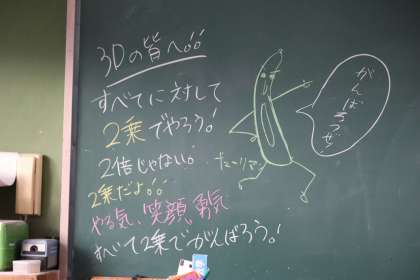 3Dの皆へ!!
すべてに対して
2乗でやろう!
2倍じゃない!
2乗だよ!!
やる気、笑顔、勇気
すべて2乗でがんばろう!
がんばろうぜ!